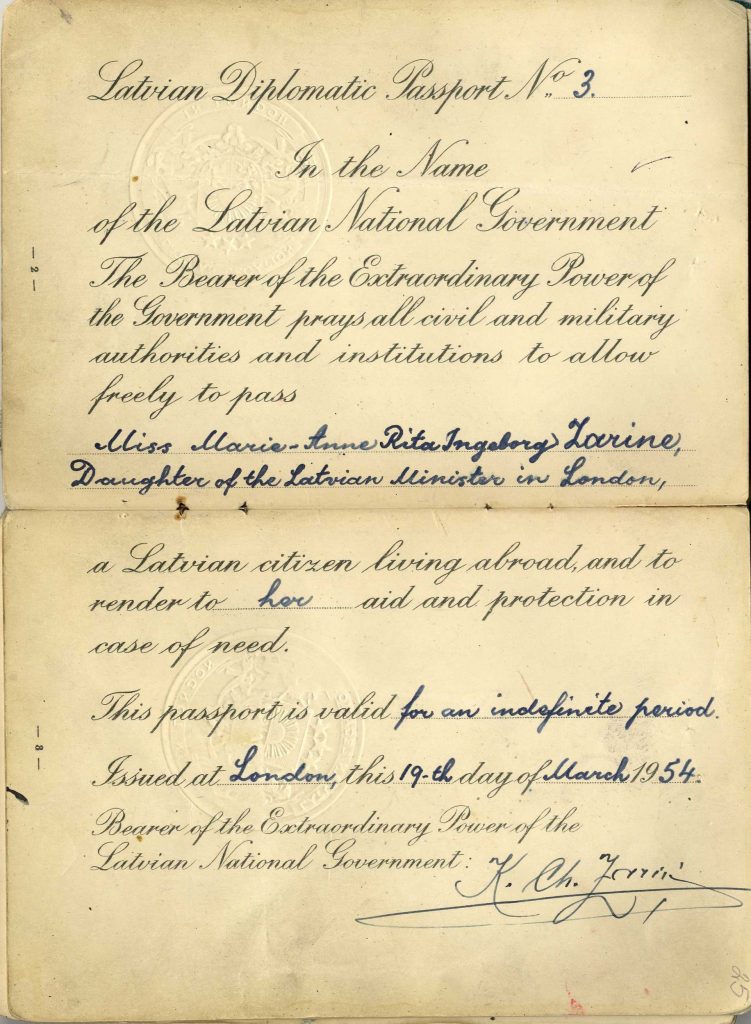 Latvian Diplomatic Passport No. 3.
In the Name
of the Latvian National Government
The Bearer of the Extraordinary Power of
the Government prays all civil and military
authorities and institutions to allow
freely to pass
Miss Marie-Anne Rita Ingeborg Zarine,
Daughter of the Latvian Minister in London,
— 2 —
a Latvian citizen living abroad, and to
render to her aid and protection in
case of need.
This passport is valid for an indefinite period.
Issued at London, this 19-th day of March 1954.
Bearer of the Extraordinary Power of the
Latvian National Government:
K. Ch.
— 3 —
25